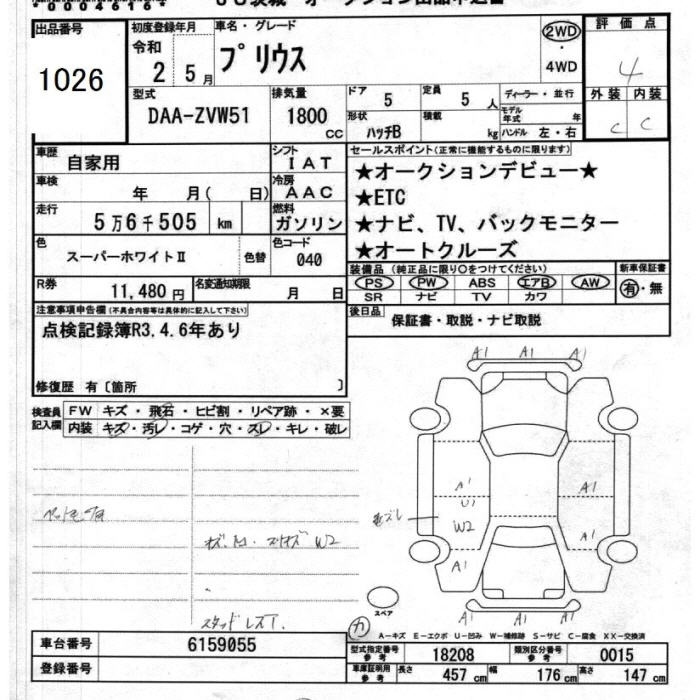 出品番号 1026
初度登録年月 令和 2 5月
車名・グレード プリウス
2WD・4WD
評価点 4
外装 C 内装 C
型式 DAA-ZVW51
排気量 1800 CC
ドア 5 定員 5人
ディーラー・並行
形状 ハッチB 積載 kg
モデル年式 年
ハンドル 左・右
車歴 自家用
シフト IAT
車検 年 月( 日)
冷房 AAC
走行 5万6千505 km
燃料 ガソリン
色 スーパーホワイトⅡ 色替
色コード 040
R券 11,480円 名変通知期限 月 日
セールスポイント(正常に機能するものに限ります)
★オークションデビュー★
★ETC
★ナビ、TV、バックモニター
★オートクルーズ
装備品(純正品に限り○をつけてください)
PS PW ABS エアB AW
SR ナビ TV カワ
新車保証書 有・無
後日品 保証書・取説・ナビ取説
注意事項申告欄(不具合内容等は具体的に記入して下さい)
点検記録簿R3.4.6年あり
修復歴 有〔箇所 〕
検査員記入欄
FW キズ・飛石・ヒビ割・リペア跡・×要
内装 キズ・汚レ・コゲ・穴・スレ・キレ・破レ
A1 A1 A1
A1 U1
W2
A1 A1
A1 A1
A1 A1 A1
スペア
A−キズ E−エクボ U−凹み W−補修跡 S−サビ C−腐食 XX−交換済
車台番号 6159055
登録番号
型式指定番号 参考 18208 類別区分番号 参考 0015
車庫証明用 参考 長さ 457cm 幅 176cm 高さ 147cm